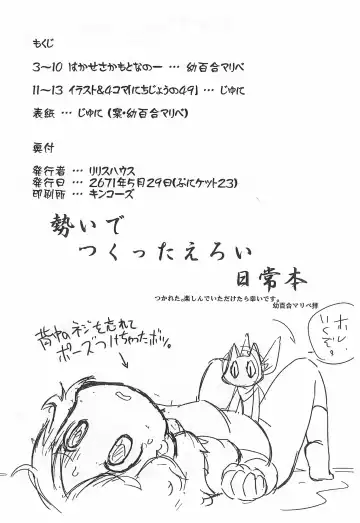 もくじ
3～10 はかせさかもとなのー … 幼百合マリベ
11～13 イラスト&4コマ「にちじょうの49」 … じゅに
表紙 … じゅに (案・幼百合マリベ)
奥付
発行者 … リリスハウス
発行日 … 2671年5月29日(ぷにケット23)
印刷所 … キンコーズ
勢いで
つくったえろい
日常本
つかれた。楽しんでいただけたら幸いです。
幼百合マリベ拝
背中のネジを忘れて
ポーズつけちゃったボツ。